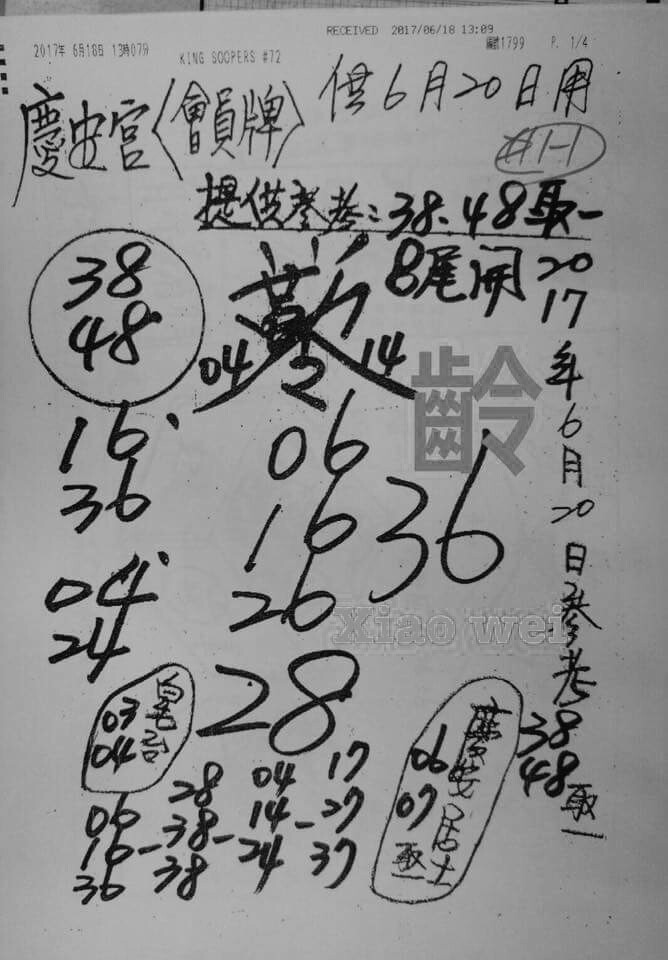 RECEIVED 2017/06/18 13:09
2017年 6月18日 13時07分 KING SOOPERS #72 1799 P. 1/4
慶安宮〈會員牌〉供6月20日用
#1-1
提供參考:38.48取一
8尾開
38
48
04 14
齡
16
36
04
24
06
16
26
36
28
2017年6月20日參考
38
48
取一
03
04
06
07
慶安居士
取一
06 28 04 17
16-38-14-27
36 38 24 37
Xiao wei